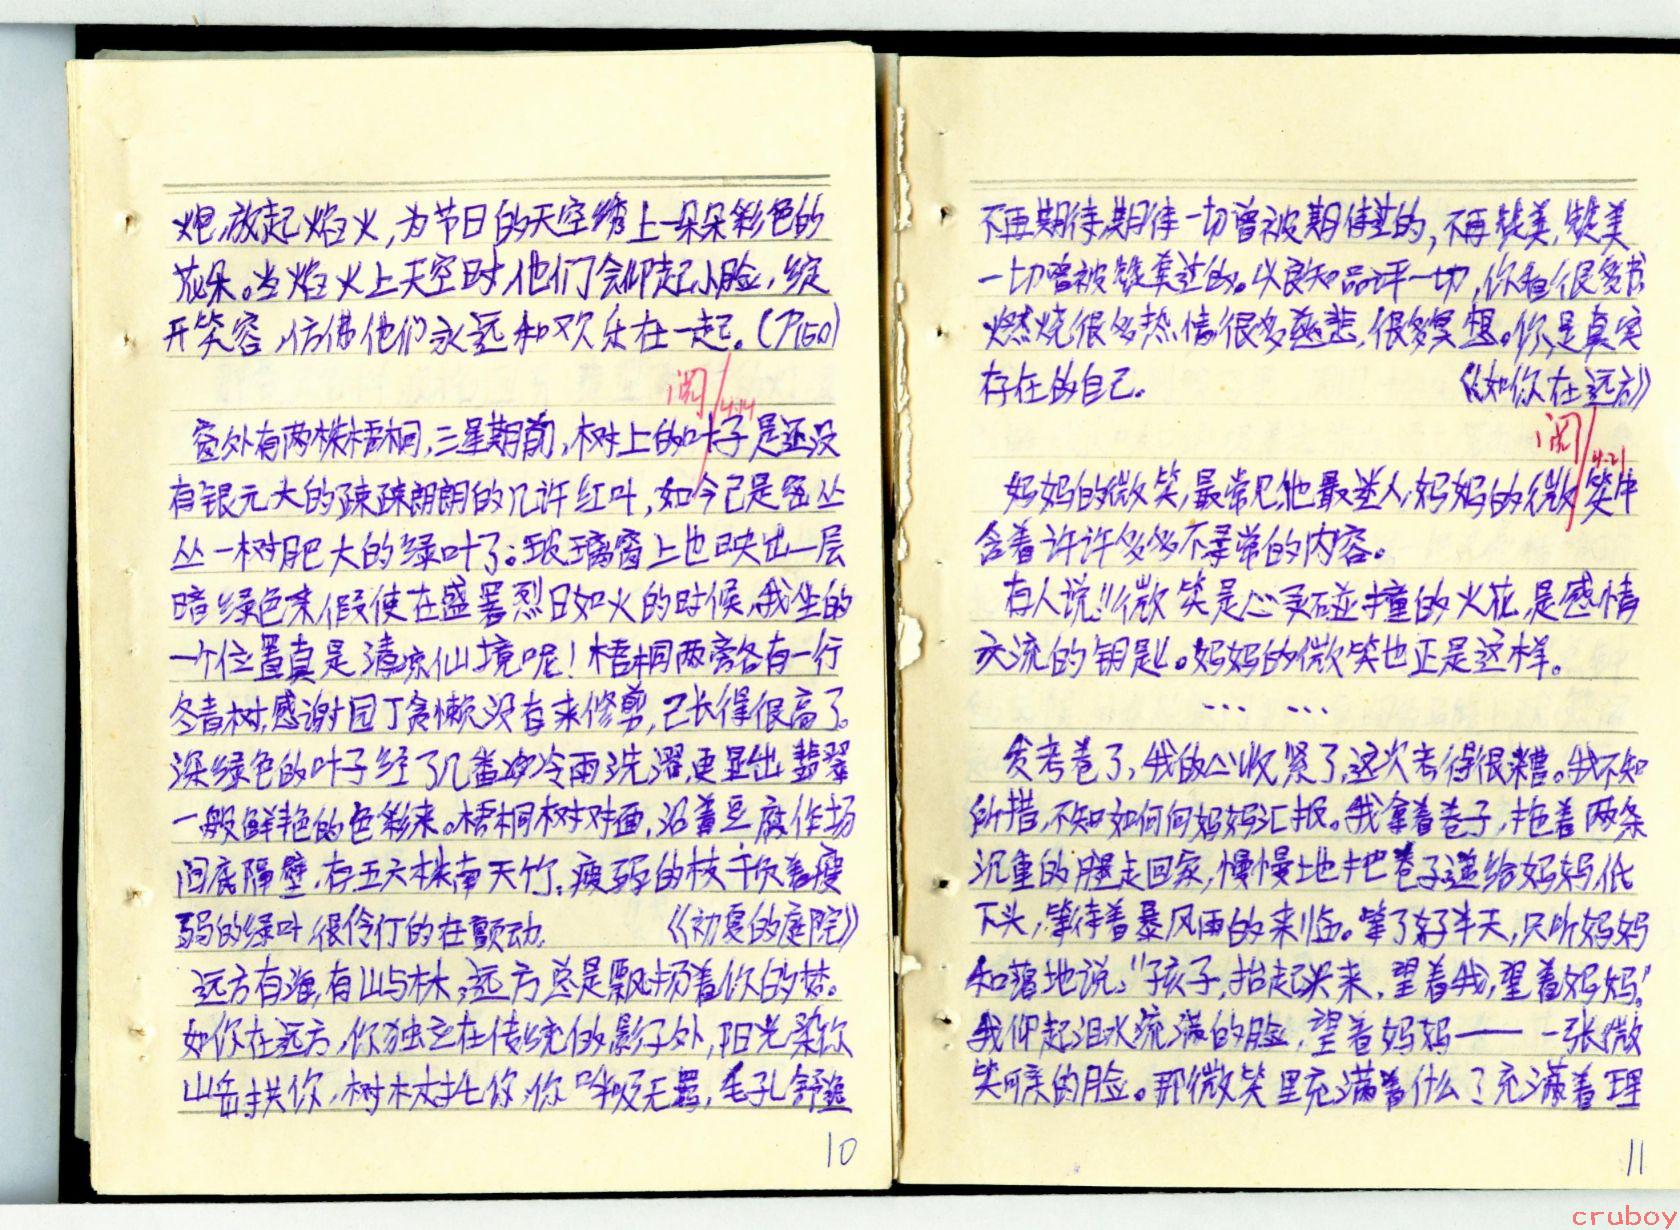 炮,放起焰火,为节日的天空绣上一朵朵彩色的
花朵。当焰火上天空时,他们会仰起小脸,绽
开笑容,仿佛他们永远和欢乐在一起。(P150)
阅 4.14
窗外有两株梧桐,三星期前,树上的叶子是还没
有银元大的疎疎朗朗的几许红叶,如今已是密丛
丛一树肥大的绿叶了。玻璃窗上也映出一层
暗绿色来,假使在盛暑烈日如火的时候,我坐的
一个位置真是清凉仙境呢!梧桐两旁各有一行
冬青树,感谢园丁贪懒没有来修剪,已长得很高了。
深绿色的叶子经了几番冷雨洗濯,更显出翡翠
一般鲜艳的色彩来。梧桐树对面,沿着豆腐作场
间底隔壁,存五六株南天竹,瘦弱的枝干负着瘦
弱的绿叶,很伶仃的在颤动。 《初夏的庭院》
远方有海,有山与林,远方总是飘扬着你的梦。
如你在远方,你独立在传统的影子外,阳光柔你
山岳拱你,树林扯你,你呼吸无羁,毛孔舒逸
10
不再期待,期待一切曾被期待过的,不再赞美,赞美
一切曾被赞美过的。以良知品评一切,你看很多书
燃烧很多热情很多慈悲,很多冥想。你是真实
存在的自己。 《如你在远方》
阅 4.21
妈妈的微笑,最常见,他最迷人,妈妈的微笑中
含着许许多多不寻常的内容。
有人说:“微笑是心灵碰撞的火花,是感情
交流的钥匙”。妈妈的微笑也正是这样。
… …
发考卷了,我的心收紧了,这次考得很糟。我不知
所措,不知如何向妈妈汇报。我拿着卷子,拖着两条
沉重的腿走回家,慢慢地把卷子递给妈妈,低
下头,等待着暴风雨的来临。等了好半天,只听妈妈
和蔼地说:“孩子,抬起头来,望着我,望着妈妈。”
我仰起泪水流满的脸,望着妈妈——一张微
笑可亲的脸。那微笑里充满着什么?充满着理
11
cruboy